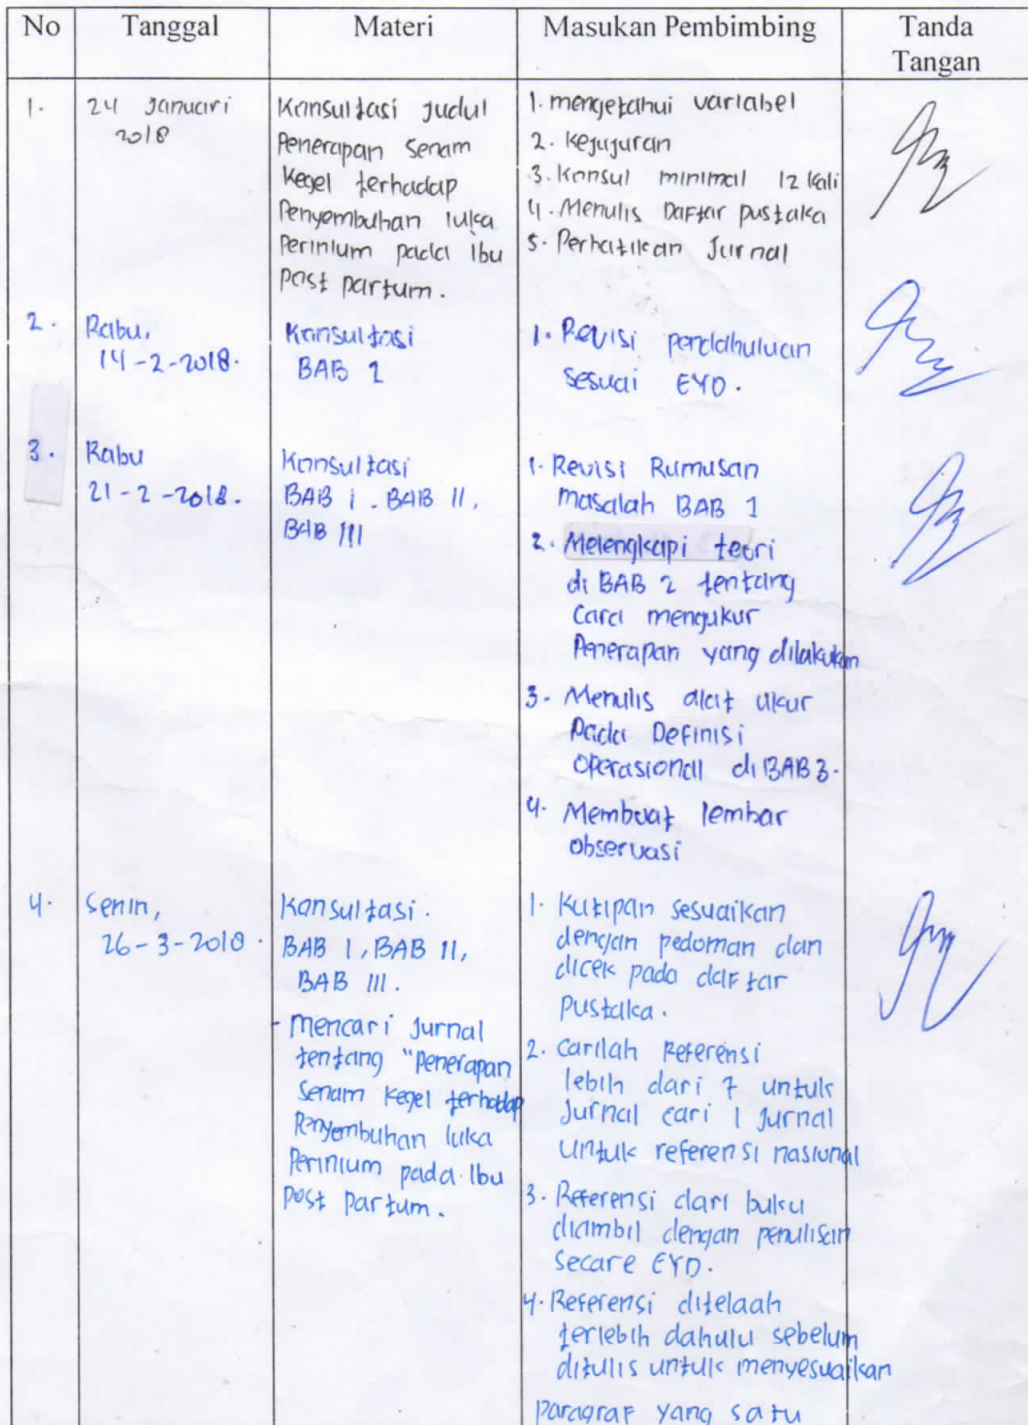 No Tanggal Materi Masukan Pembimbing Tanda
Tangan
1. 24 Januari
2018
Konsultasi Judul
Penerapan Senam
Kegel terhadap
Penyembuhan luka
Perinium pada Ibu
post partum.
1. mengetahui variabel
2. Kejujuran
3. Konsul minimal 12 kali
4. Menulis Daftar pustaka
5. Perhatikan Jurnal
2. Rabu,
14-2-2018.
Konsultasi
BAB 1
1. Revisi pendahuluan
sesuai EYD.
3. Rabu
21-2-2018.
Konsultasi
BAB I. BAB II,
BAB III
1. Revisi Rumusan
masalah BAB 1
2. Melengkapi teori
di BAB 2 tentang
Cara mengukur
Penerapan yang dilakukan
3. Menulis alat ukur
Pada Definisi
operasional di BAB 3.
4. Membuat lembar
observasi
4. Senin,
26-3-2018.
Konsultasi.
BAB I, BAB II,
BAB III.
- Mencari Jurnal
tentang "Penerapan
Senam Kegel terhadap
Penyembuhan luka
Perinium pada Ibu
post partum.
1. Kutipan sesuaikan
dengan pedoman dan
dicek pada daftar
Pustaka.
2. Carilah Referensi
lebih dari 7 untuk
Jurnal cari 1 Jurnal
untuk referensi nasional
3. Referensi dari buku
diambil dengan penulisan
Secare EYD.
4. Referensi ditelaah
terlebih dahulu sebelum
ditulis untuk menyesuaikan
paragraf yang satu